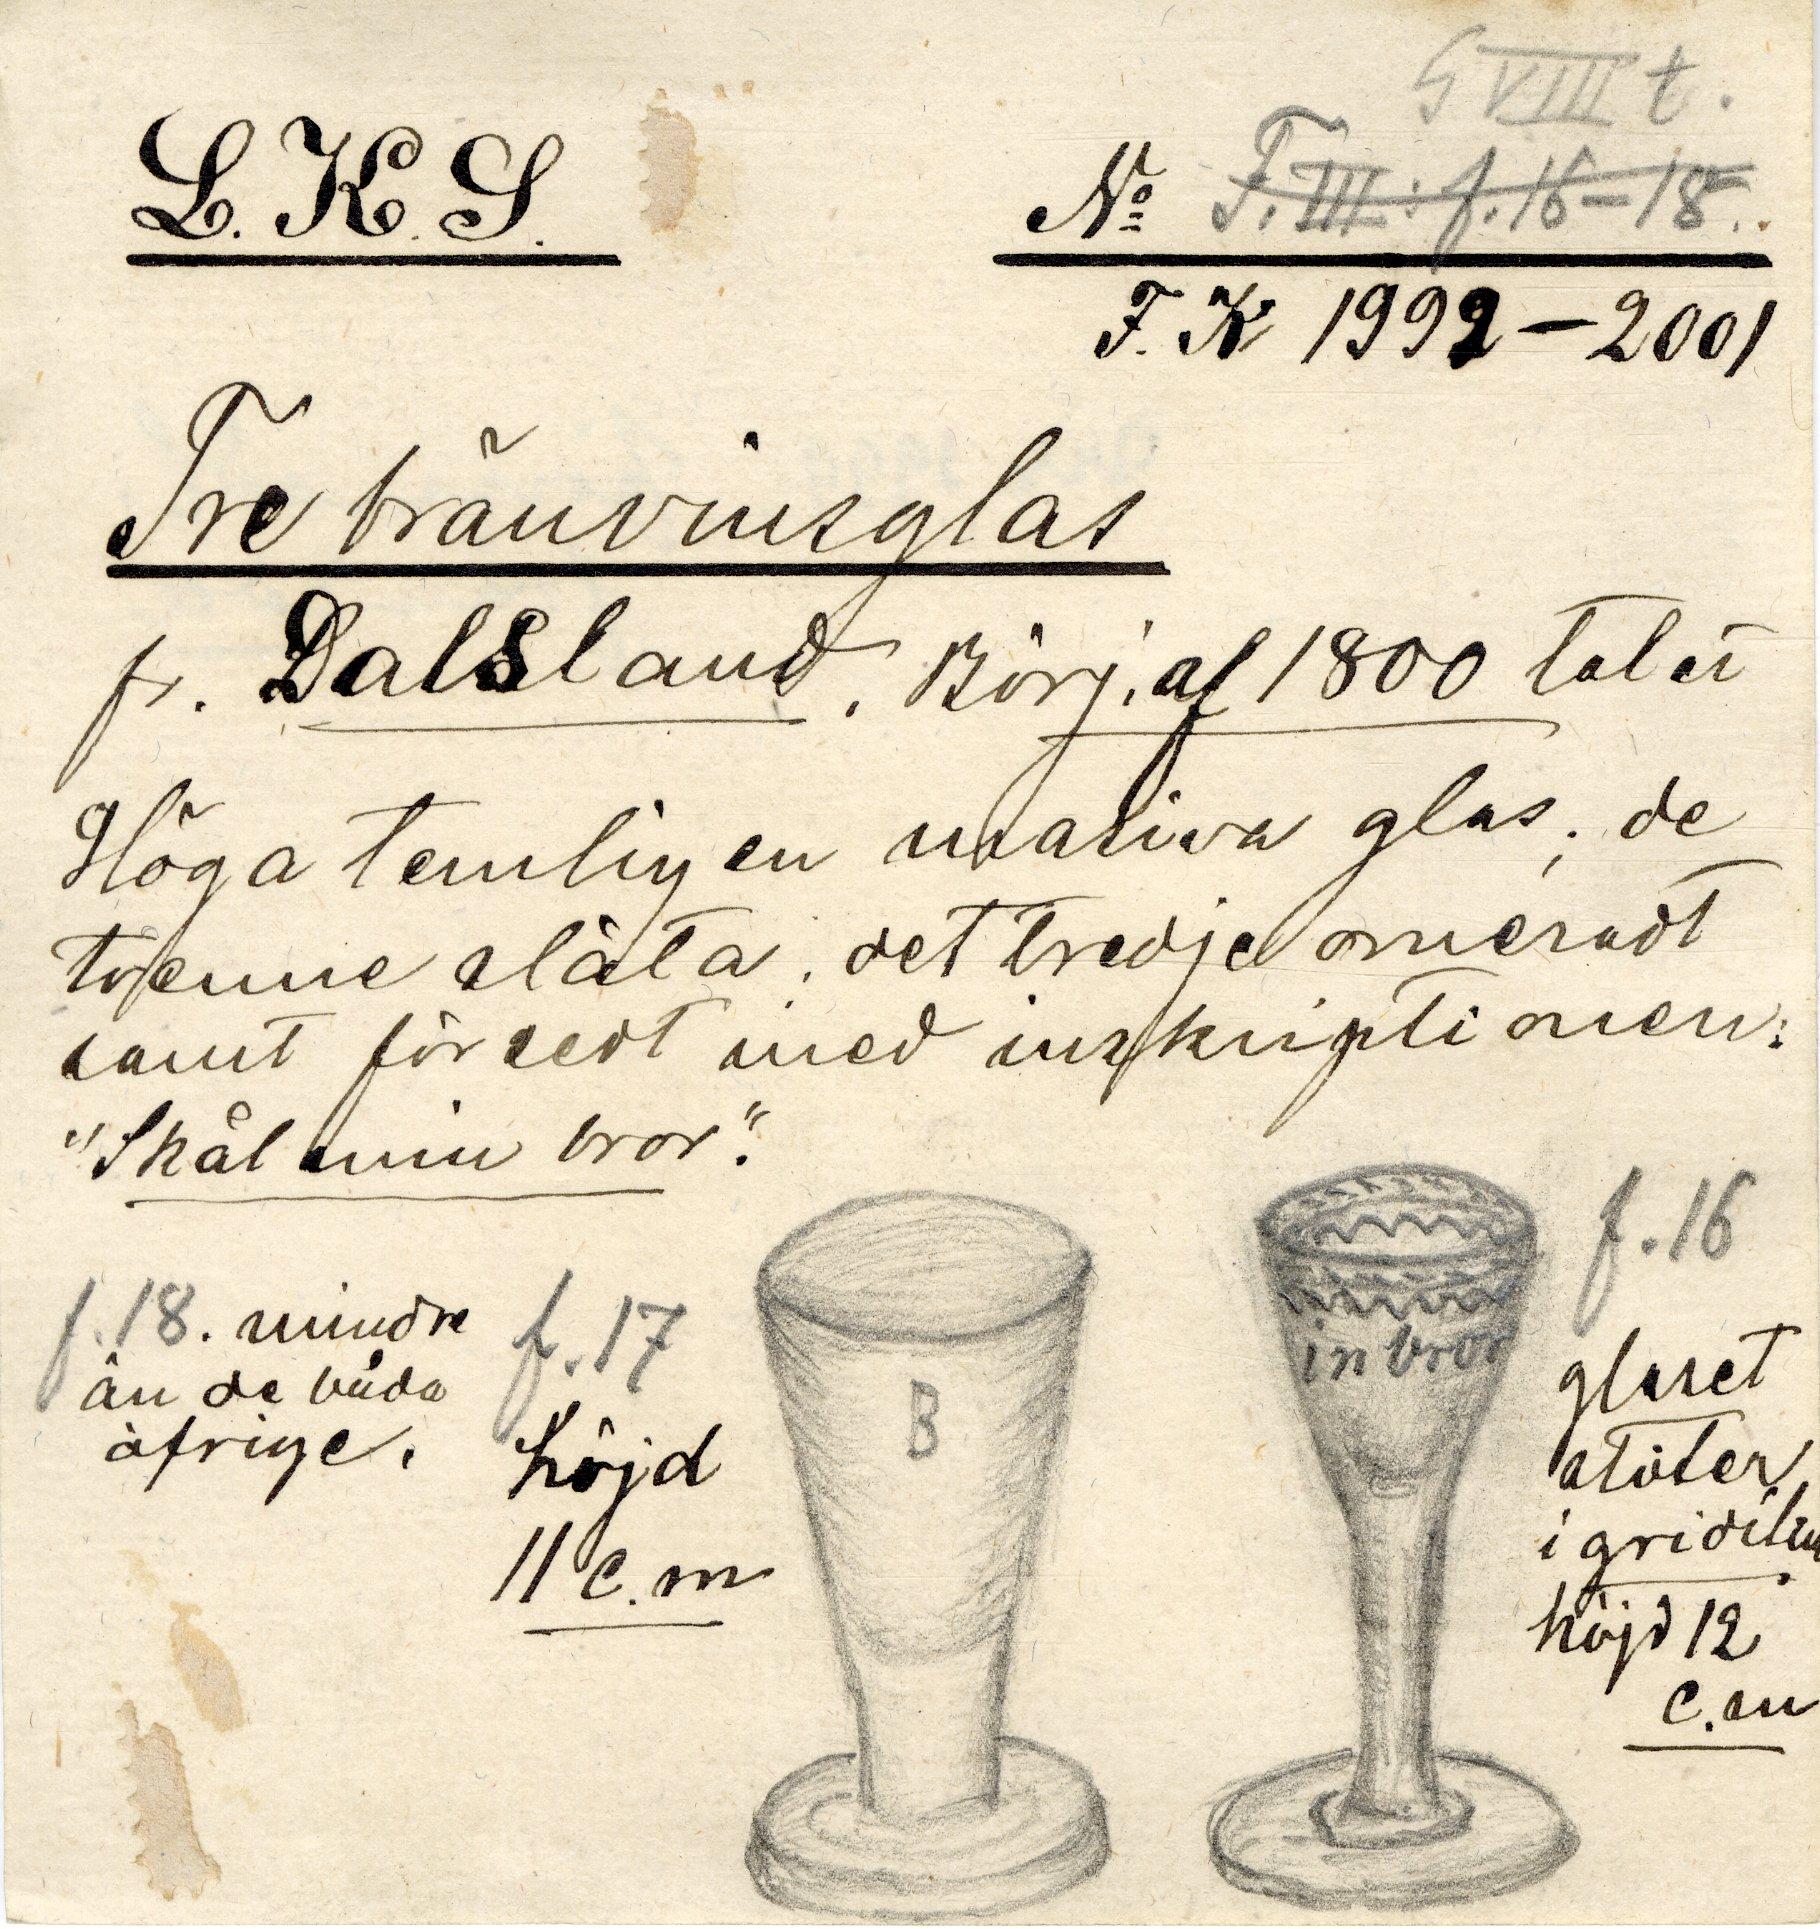 G VIII t.
L. K. S.
No F. III: f. 16-18.
F. K 1992-2001
Tre bränvinsglas
fr. Dalsland. Börj. af 1800 talet
Höga temligen masiva glas; de
tvenne släta, det tredje orneradt
samt försedt med inskriptionen:
"Skål min bror".
f. 18. mindre
än de båda
öfrige.
f. 17
höjd
11 c.m
B
in bror
f. 16
glaset
stöter
i gridelin
höjd 12
c.m